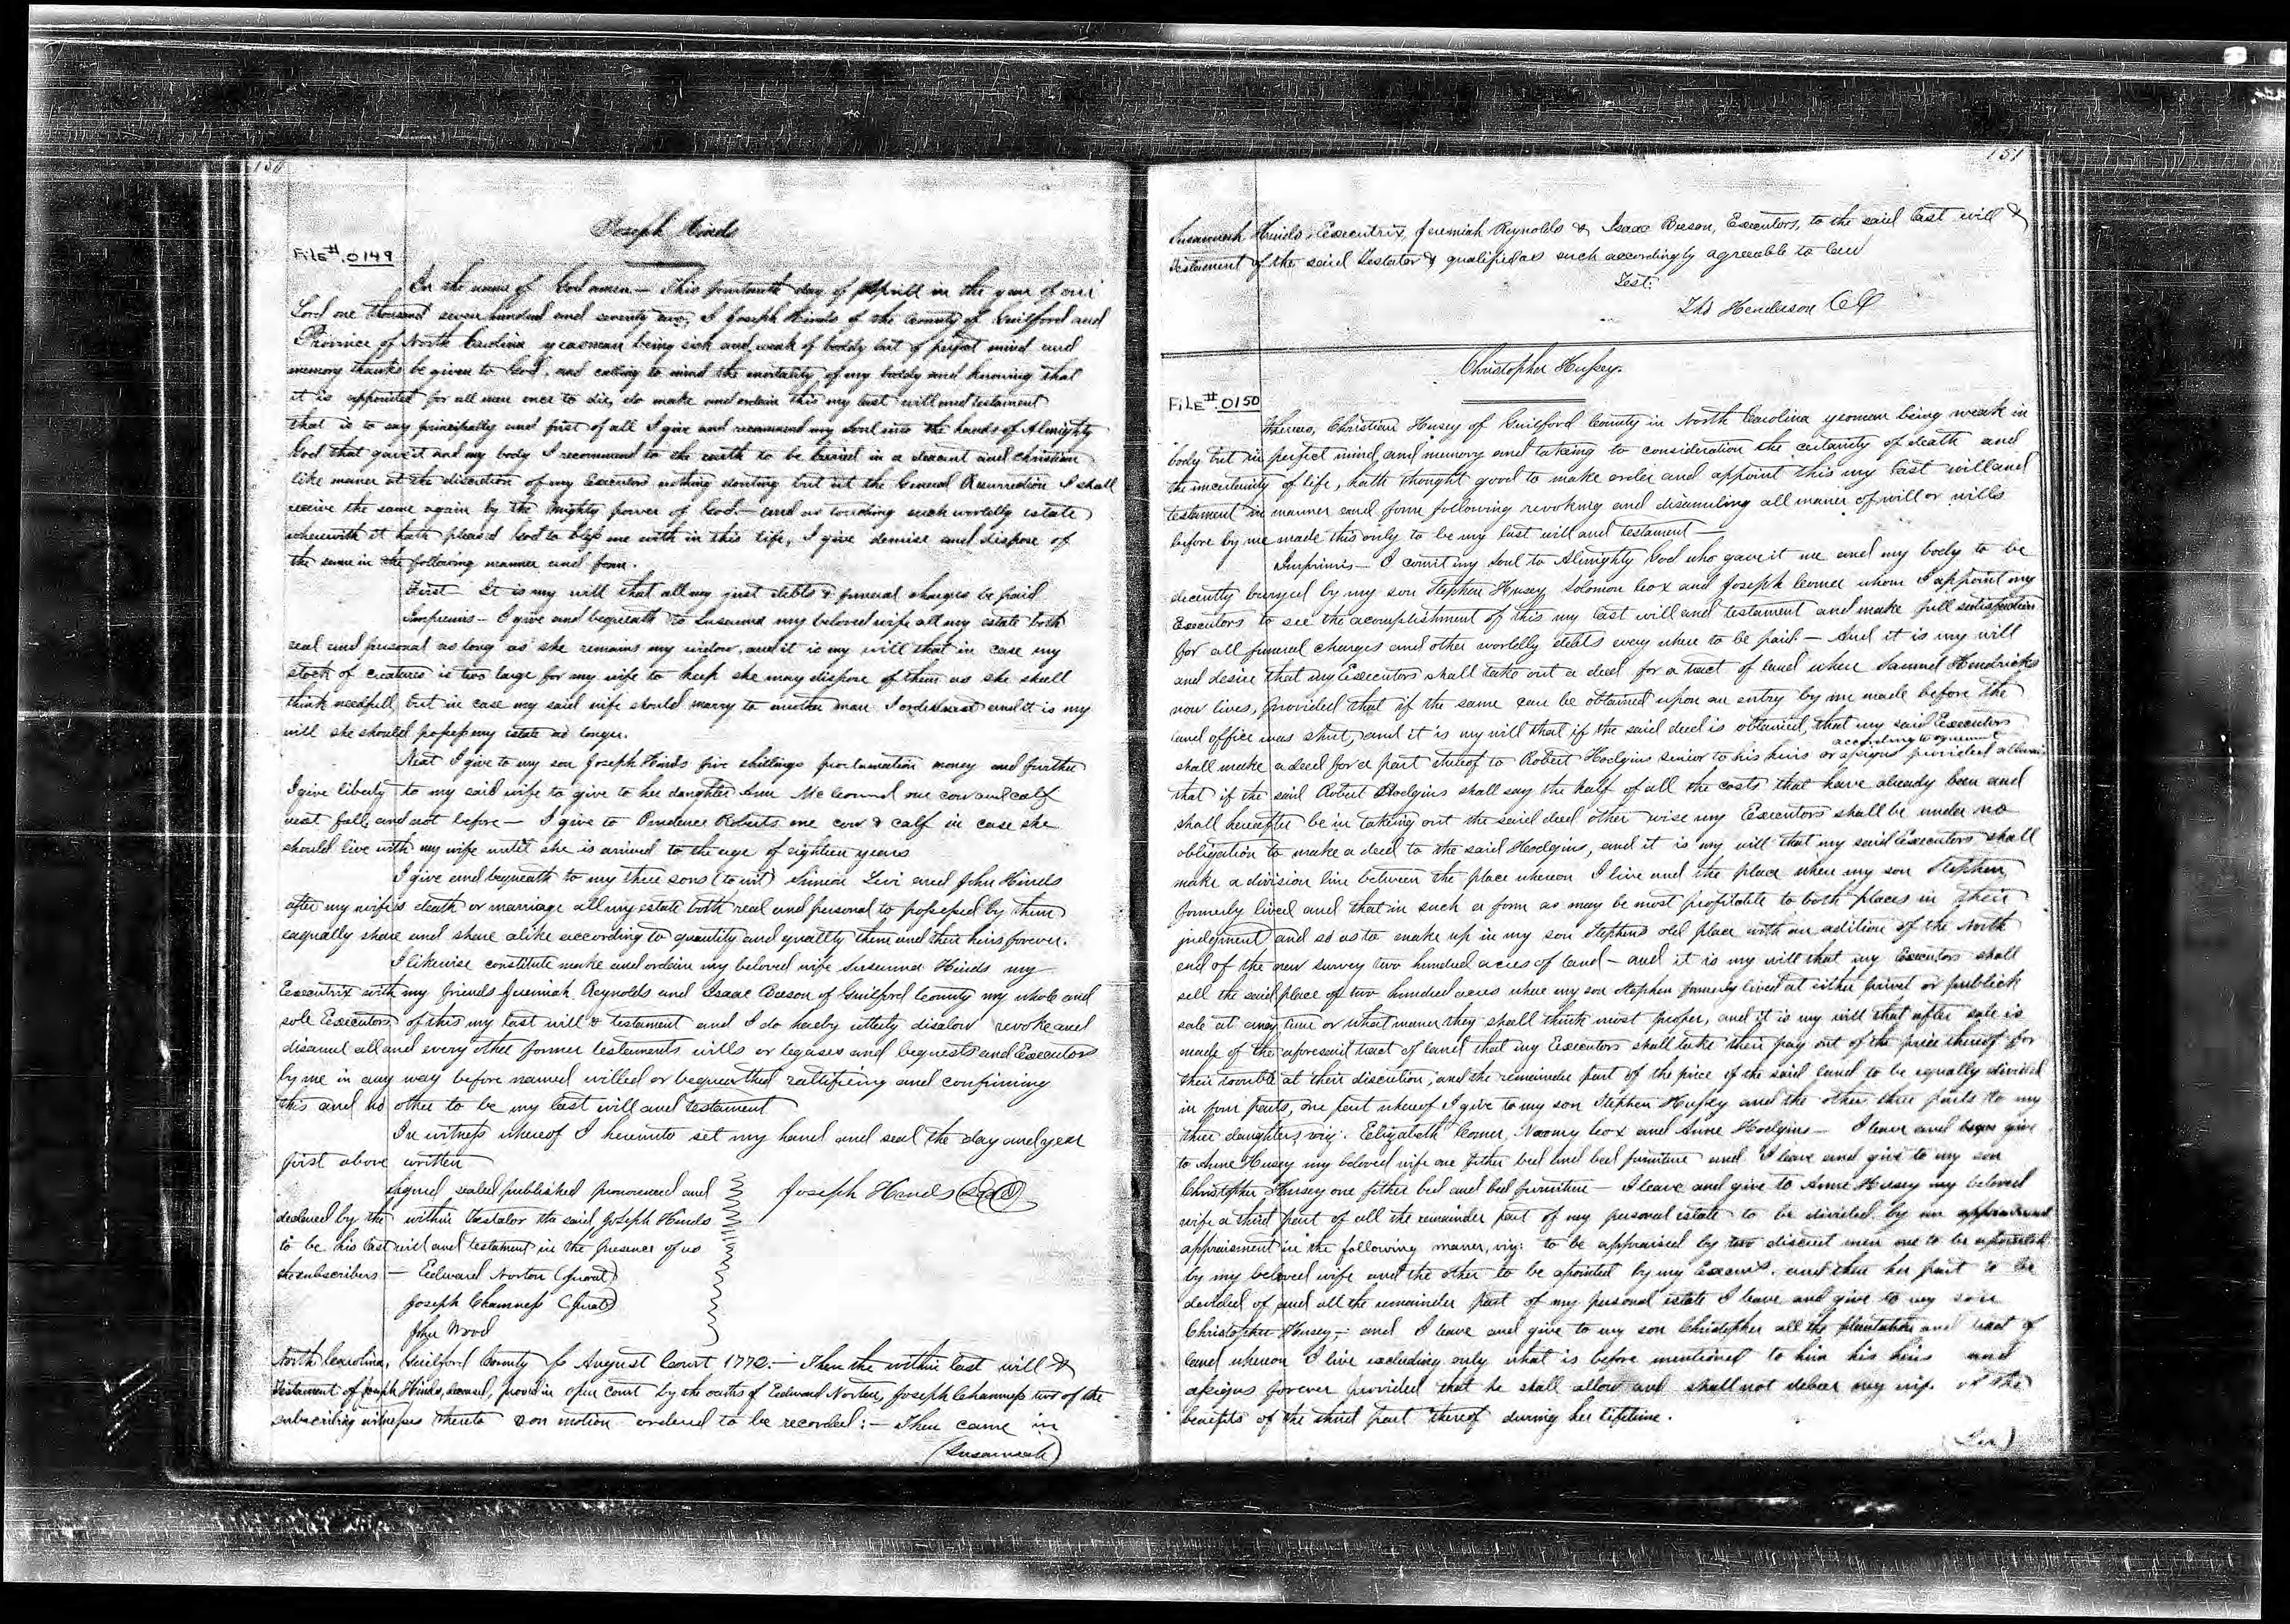 150
Joseph Hinds
FILE # 0149
In the name of God amen — This fourteenth day of Aprill in the year of our
Lord one thousand seven hundred and seventy two, I Joseph Hinds of the County of Guilford and
Province of North Carolina yeasman being sick and weak of boddy but of perfect mind and
memory thanks be given to God, and calling to mind the mortality of my boddy and knowing that
it is appointed for all men once to die, do make and ordain this my last will and testament
that is to say principally and first of all I give and recommend my soul into the hands of Almighty
God that gave it and my body I recommend to the earth to be buried in a deacent and christian
like maner at the discretion of my Executors nothing douting but at the General Resurrection I shall
receive the same again by the mighty power of God — and as touching such worldly estate
wherewith it hath pleased God to bless me with in this life, I give demise and dispose of
the same in the following manner and form.
First It is my will that all my just debts & funeral charges be paid
Impremis — I give and bequeath to Susanna my beloved wife all my estate both
real and personal as long as she remains my widow, and it is my will that in case my
stock of creatures is two large for my wife to keep she may dispose of them as she shall
think needfull, but in case my said wife should marry to another man I order and it is my
will she should possess my estate no longer.
Next I give to my son Joseph Hinds five shillings proclamation money and further
I give liberty to my said wife to give to her daughter Ann Mc Connel one cow and calf
next fall, and not before — I give to Prudence Roberts one cow & calf in case she
should live with my wife until she is arived to the age of eighteen years
I give and bequeath to my three sons (to wit) Simeon Levi and John Hinds
after my wife's death or marriage all my estate both real and personal to possessed by them
eaqually share and share alike according to quantity and quality them and their heirs forever.
I likewise constitute make and ordain my beloved wife Susanna Hinds my
Executrix with my friends Jeremiah Reynolds and Isaac Beeson of Guilford County my whole and
sole Executors of this my last will & testament and I do hereby utterly disalow revoke and
disanul all and every other former testaments wills or legases and bequests and Executors
by me in any way before named willed or bequeathed rattifieing and confirming
this and no other to be my last will and testament
In witness whereof I hereunto set my hand and seal the day and year
first above written
Signed, sealed published pronounced and
declared by the within Testator the said Joseph Hinds
to be his last will and testament in the presence of us
the subscribers — Edward Norton (Jurat)
Joseph Chamness (Jurat)
John Wood
Joseph Hinds Seal
North Carolina, Guilford County Sc August Court 1772. — Then the within last will &
Testament of Joseph Hinds, deceased, proved in open court by the oaths of Edward Norton, Joseph Chamness two of the
subscribing witnesses thereto & on motion ordered to be recorded: — Then came in
(Susannah)
151
Susannah Hinds, Executrix, Jeremiah Reynolds & Isaac Beeson, Executors, to the said last will &
Testament of the said Testator & qualified as such accordingly agreeable to law
Test:
Thos Henderson CC
Christopher Hussey.
FILE # 0150
Whereas, Christian Husey of Guilford County in North Carolina yeoman being weak in
body but in perfect mind, and memory and taking to consideration the certainity of death and
the uncertainity of life, hath thought good to make order and appoint this my last will and
testament in manner and form following revoking and disannuling all maner of will or wills
before by me made this only to be my last will and testament —
Imprimis — I comit my soul to Almighty God who gave it me and my body to be
decently buryed by my son Stephen Husey Solomon Cox and Joseph Comer whom I appoint my
Executors to see the acomplishment of this my last will and testament and make full satisfaction
for all funeral charges and other worldly debts every where to be paid — And it is my will
and desire that my Executors shall take out a deed for a tract of land where Samuel Hendricks
now lives, provided that if the same can be obtained upon an entry by me made before the
land office was shut, and it is my will that if the said deed is obtained, that my said Executors
according to agrement
shall make a deed for a part thereof to Robert Hodgins senior to his heirs or assigns provided allways
that if the said Robert Hodgins shall say the half of all the costs that have already been and
shall hereafter be in taking out the said deed other wise my Executors shall be under no
obligation to make a deed to the said Hodgins, and it is my will that my said Executors shall
make a division line between the place whereon I live and the place where my son Stephen
formerly lived and that in such a form as may be most profitable to both places in their
judgment and so as to make up in my son Stephens old place with an adition of the North
end of the new survey two hundred acres of land — and it is my will that my Executors shall
sell the said place of two hundred acres where my son Stephen formerly lived at either privet or publick
sale at any time or what maner they shall think most proper, and it is my will that after sale is
made of the aforesaid tract of land that my Executors shall take their pay out of the price thereof for
their trouble at their discretion, and the remainder part of the price of the said land to be equally divided
in four parts, one part whereof I give to my son Stephen Hussey and the other three parts to my
three daughters, viz: Elizabeth Comer, Naomy Cox and Anne Hodgins — I leave and give
to Anne Husey my beloved wife one fether bed and bed furniture and I leave and give to my son
Christopher Husey one fether bed and bed furniture — I leave and give to Anne Husey my beloved
wife a third part of all the remainder part of my personal estate to be divided by an
appraisment in the following maner, viz: to be appraised by two discreet men one to be apointed
by my beloved wife and the other to be apointed by my Execrs. and then her part to be
devided of and all the remainder part of my personal estate I leave and give to my son
Christopher Husey, — and I leave and give to my son Christopher all the plantation and tract of
land whereon I live excluding only what is before mentioned to him his heirs and
assigns forever provided that he shall allow and shall not debar my wife of the
benefits of the third part thereof during her lifetime.